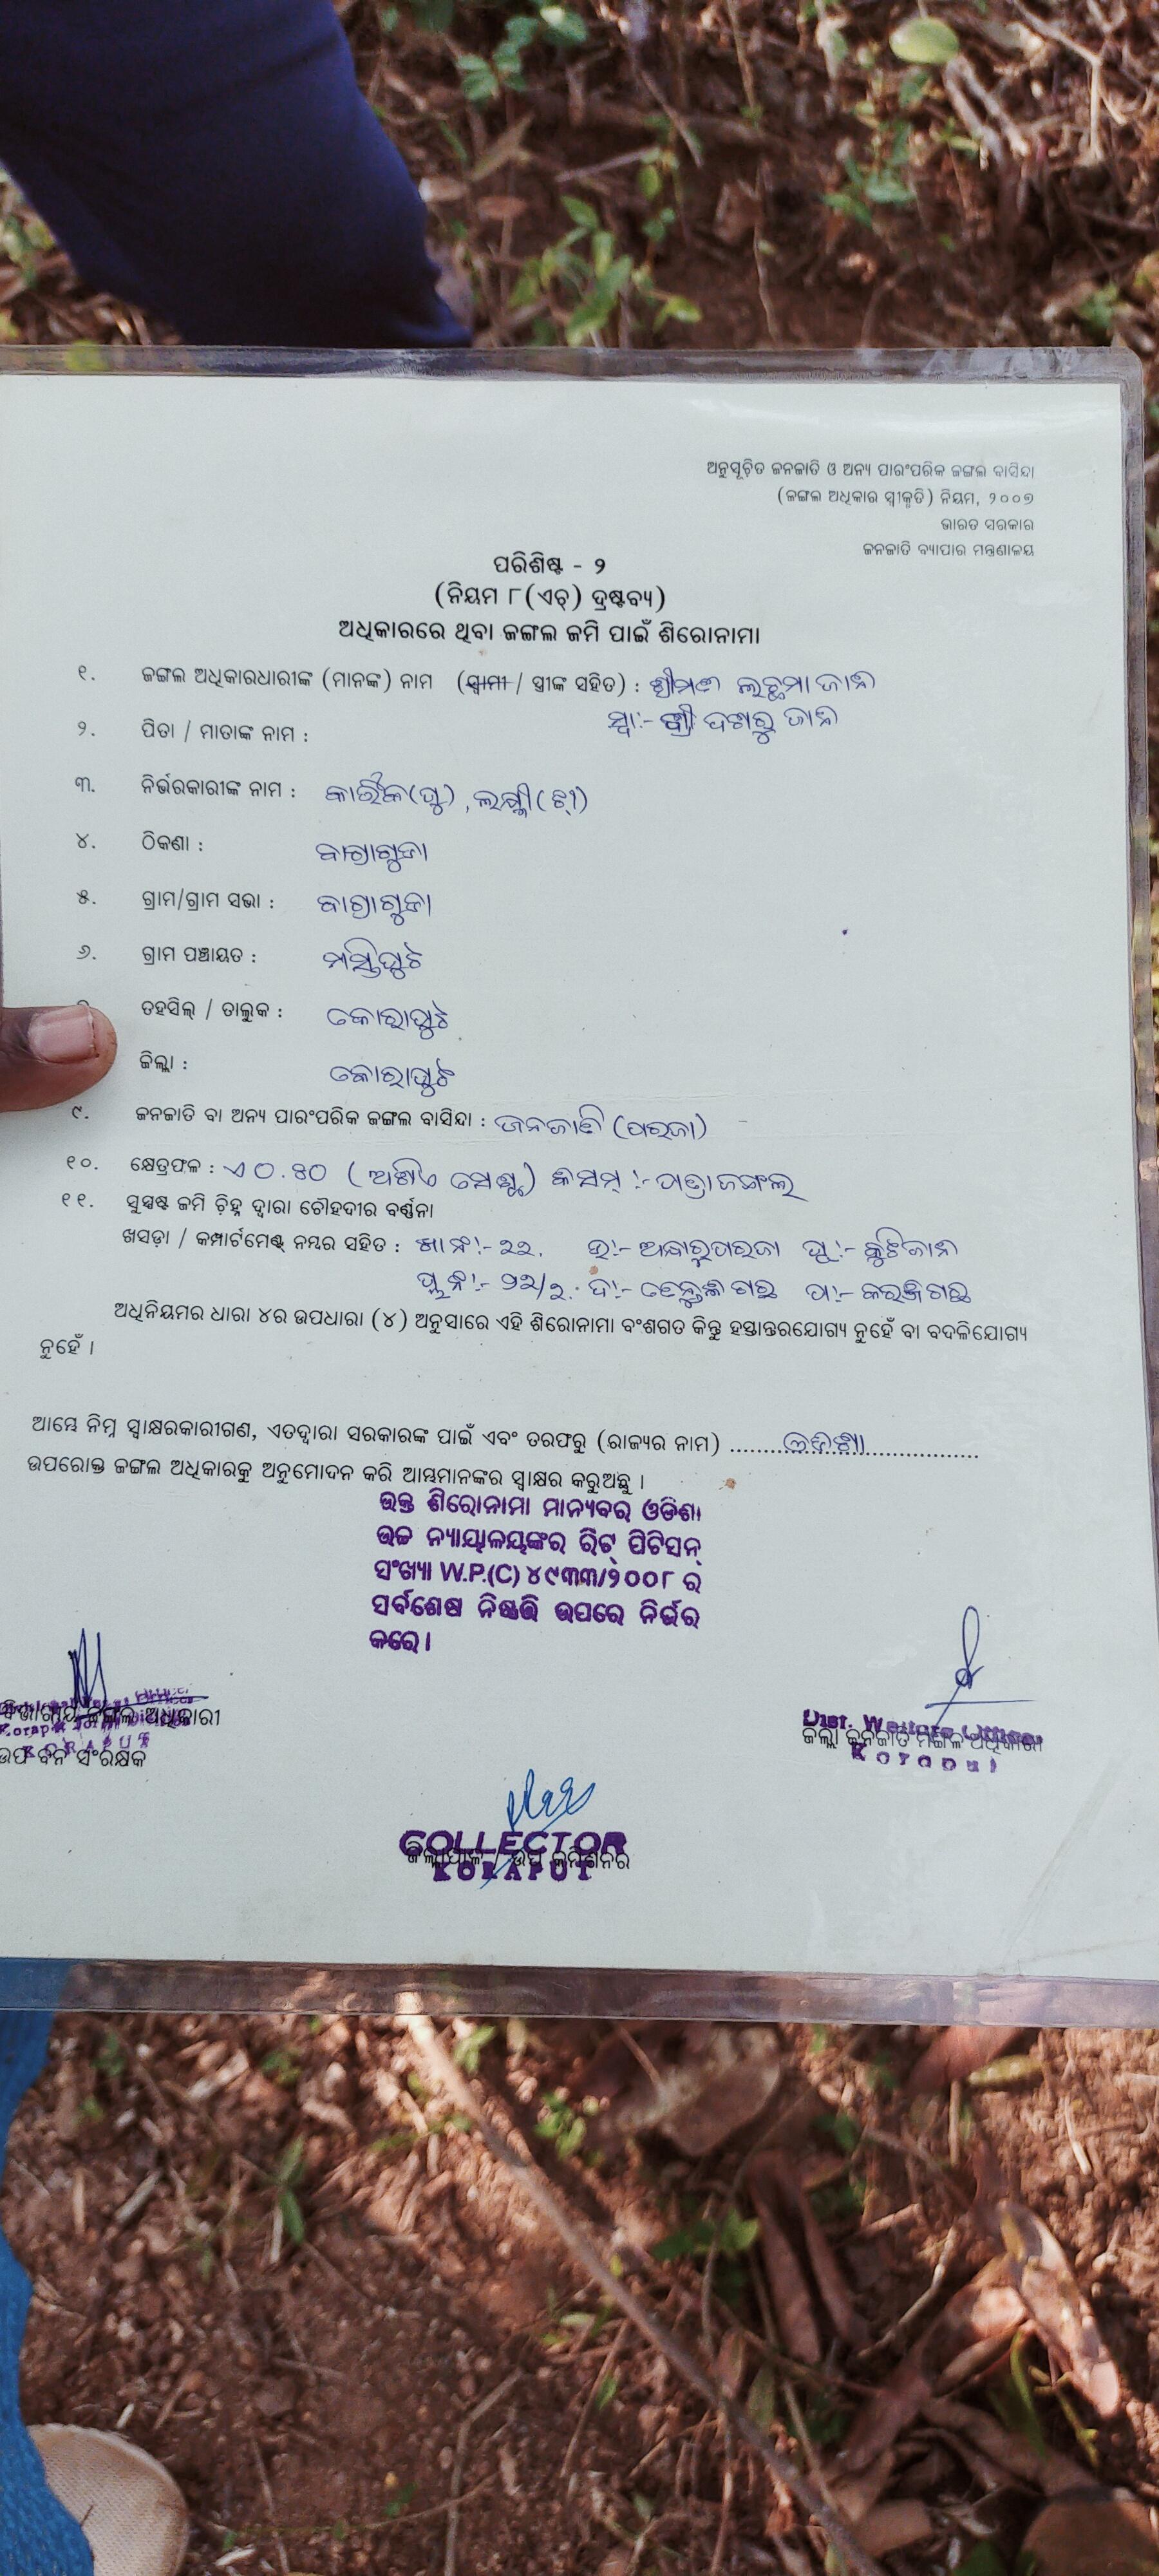 ଅନୁସୂଚିତ ଜନଜାତି ଓ ଅନ୍ୟ ପାରଂପରିକ ଜଙ୍ଗଲ ବାସିନ୍ଦା
(ଜଙ୍ଗଲ ଅଧିକାର ସ୍ୱୀକୃତି) ନିୟମ, ୨୦୦୭
ଭାରତ ସରକାର
ଜନଜାତି ବ୍ୟାପାର ମନ୍ତ୍ରଣାଳୟ
ପରିଶିଷ୍ଟ - ୨
(ନିୟମ ୮(ଏଚ୍) ଦ୍ରଷ୍ଟବ୍ୟ)
ଅଧିକାରରେ ଥିବା ଜଙ୍ଗଲ ଜମି ପାଇଁ ଶିରୋନାମା
୧. ଜଙ୍ଗଲ ଅଧିକାରଧାରୀଙ୍କ (ମାନଙ୍କ) ନାମ (ସ୍ୱାମୀ / ସ୍ତ୍ରୀଙ୍କ ସହିତ) : ଶ୍ରୀମତୀ ଲଚ୍ଛମା ଜାନି
ସ୍ୱା:- ଶ୍ରୀ ଦଶରୁ ଜାନି
୨. ପିତା / ମାତାଙ୍କ ନାମ :
୩. ନିର୍ଭରକାରୀଙ୍କ ନାମ : କାର୍ତ୍ତିକ(ପୁ), ଲକ୍ଷ୍ମୀ(ଝି)
୪. ଠିକଣା :
୫. ଗ୍ରାମ/ଗ୍ରାମ ସଭା :
୬. ଗ୍ରାମ ପଞ୍ଚାୟତ : ମସ୍ତିପୁଟ
ତହସିଲ୍ / ତାଲୁକ : କୋରାପୁଟ
ଜିଲ୍ଲା : କୋରାପୁଟ
୯. ଜନଜାତି ବା ଅନ୍ୟ ପାରଂପରିକ ଜଙ୍ଗଲ ବାସିନ୍ଦା : ଜନଜାତି (ପରଜା)
୧୦. କ୍ଷେତ୍ରଫଳ : ଏ ୦.୫୦ କିସମ୍ :- ପତ୍ରା ଜଙ୍ଗଲ
୧୧. ସୁସ୍ପଷ୍ଟ ଜମି ଚିହ୍ନ ଦ୍ୱାରା ଚୌହଦୀର ବର୍ଣ୍ଣନା
ଖସଡ଼ା / କମ୍ପାର୍ଟମେଣ୍ଟ୍ ନମ୍ବର ସହିତ : ଖା ନଂ:- ୨୨. ଉ:- ଅନ୍ଧାରୁ ପରଜା ପୂ:-
ପ୍ଲ ନଂ:- ଦ:- ତେନ୍ତୁଳି ଗଛ ପ:- କରଞ୍ଜି ଗଛ
ଅଧିନିୟମର ଧାରା ୪ର ଉପଧାରା (୪) ଅନୁସାରେ ଏହି ଶିରୋନାମା ବଂଶଗତ କିନ୍ତୁ ହସ୍ତାନ୍ତରଯୋଗ୍ୟ ନୁହେଁ ବା ବଦଳିଯୋଗ୍ୟ
ନୁହେଁ ।
ଆମ୍ଭେ ନିମ୍ନ ସ୍ୱାକ୍ଷରକାରୀଗଣ, ଏତଦ୍ୱାରା ସରକାରଙ୍କ ପାଇଁ ଏବଂ ତରଫରୁ (ରାଜ୍ୟର ନାମ) ଓଡ଼ିଶା
ଉପରୋକ୍ତ ଜଙ୍ଗଲ ଅଧିକାରକୁ ଅନୁମୋଦନ କରି ଆମ୍ଭମାନଙ୍କର ସ୍ୱାକ୍ଷର କରୁଅଛୁ ।
ଉକ୍ତ ଶିରୋନାମା ମାନ୍ୟବର ଓଡିଶା
ଉଚ୍ଚ ନ୍ୟାୟାଳୟଙ୍କର ରିଟ୍ ପିଟିସନ୍
ସଂଖ୍ୟା W.P.(C) ୪୯୩୩/୨୦୦୮ ର
ସର୍ବଶେଷ ନିଷ୍ପତ୍ତି ଉପରେ ନିର୍ଭର
କରେ।
ବିଭାଗୀୟ ଜଙ୍ଗଲ ଅଧିକାରୀ
ଉପ ବନ ସଂରକ୍ଷକ
KORAPUT
Dist. Welfare Officer
ଜିଲ୍ଲା ଜନଜାତି ମଙ୍ଗଳ ଅଧିକାରୀ
Koraput
COLLECTOR
ଜିଲ୍ଲାପାଳ / ଉପ କମିଶନର
KORAPUT